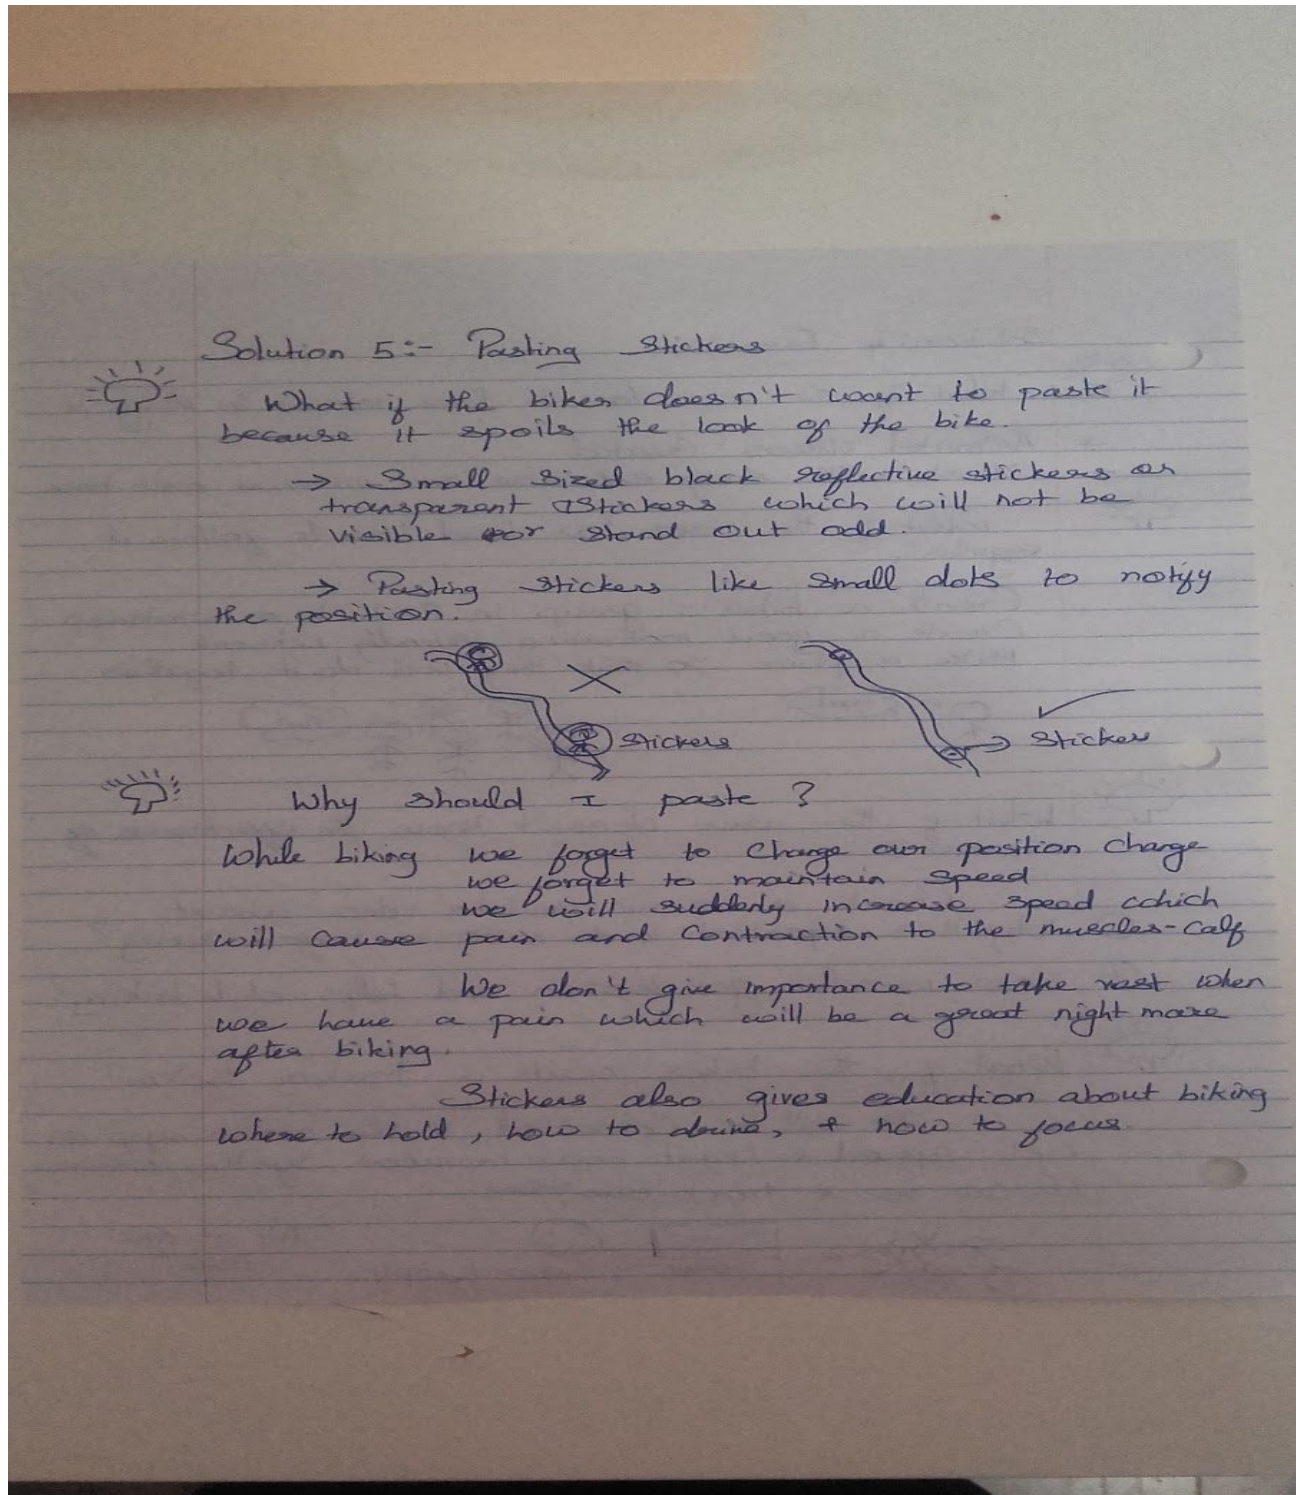 Solution 5:- Pasting Stickers
What if the biker doesn't want to paste it
because it spoils the look of the bike.
→ Small sized black reflective stickers or
transparent stickers which will not be
visible or stand out odd.
→ Pasting stickers like small dots to notify
the position.
Stickers
Sticker
Why should I paste ?
While biking we forget to change our position change
we forget to maintain speed
we will suddenly increase speed which
will cause pain and contraction to the muscles-calf
We don't give importance to take rest when
we have a pain which will be a great night mare
after biking.
Stickers also gives education about biking
where to hold, how to drive, + how to focus.